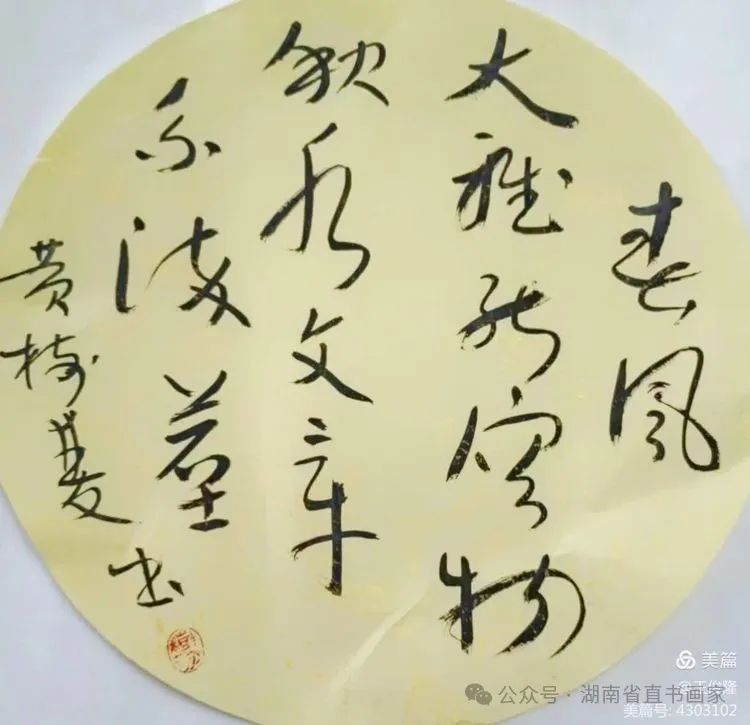 春风
大雅能容物
秋水文章
不染尘
黄树 书
美篇
公众号 · 湖南省直书画家
美篇号: 4303102